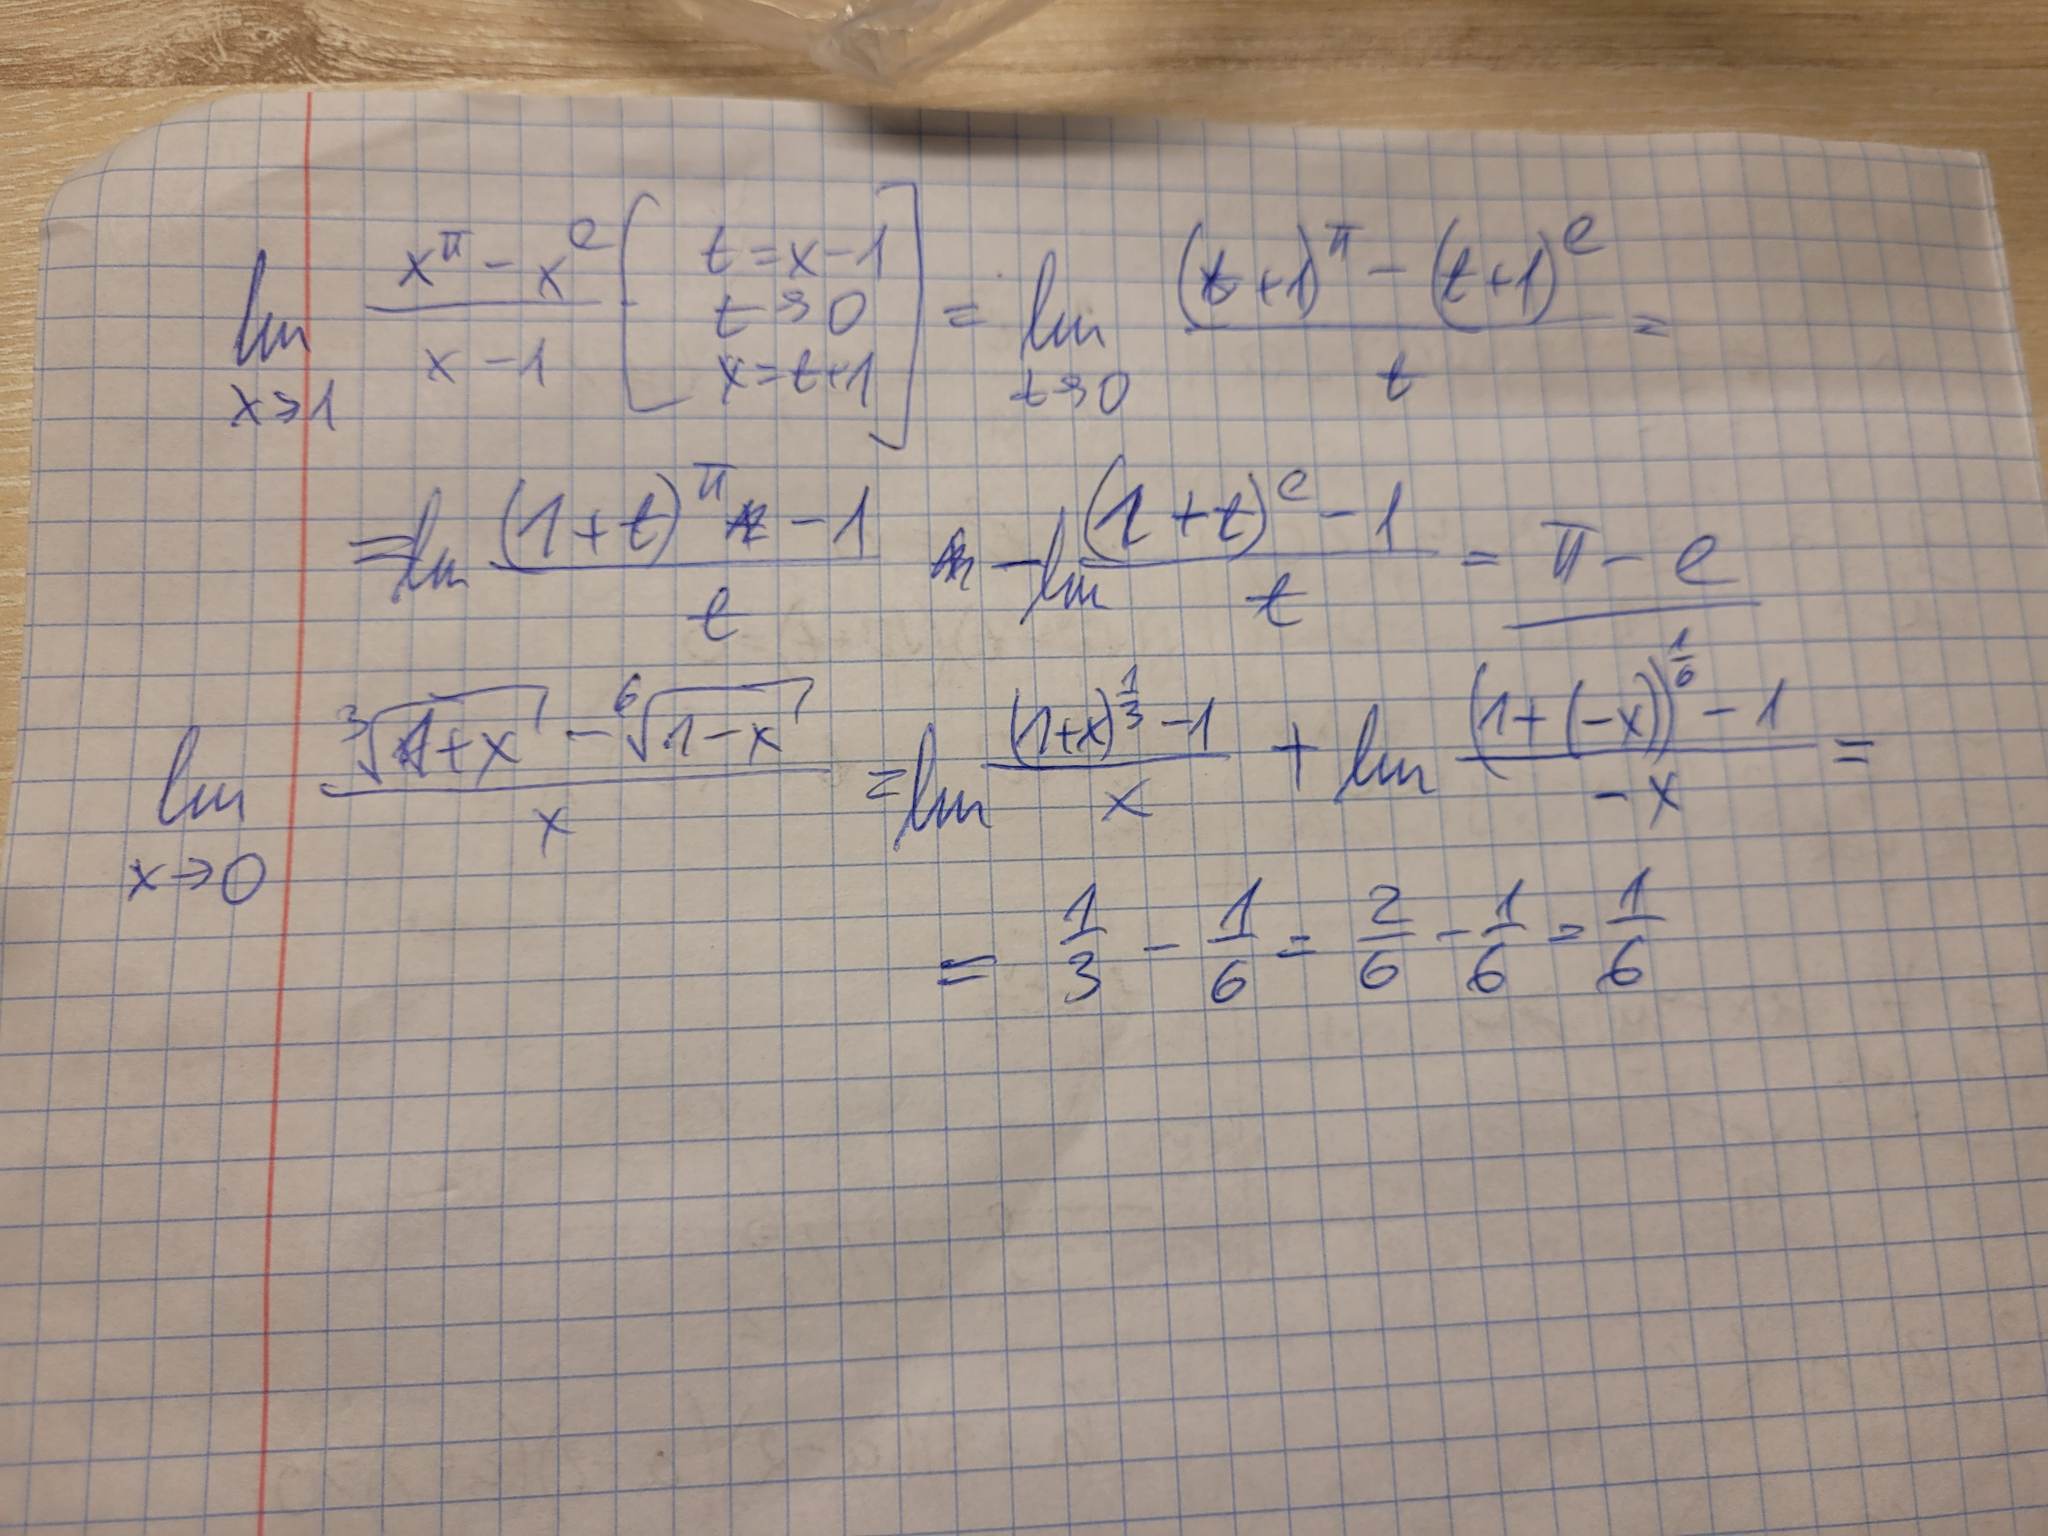 lim x→1 (x^π - x^e)/(x - 1) [t = x - 1 t → 0 x = t + 1] = lim t→0 ((t + 1)^π - (t + 1)^e)/t =
= lim ((1 + t)^π - 1)/t - lim ((1 + t)^e - 1)/t = π - e
lim x→0 (∛(1 + x) - ⁶√(1 - x))/x = lim ((1 + x)^(1/3) - 1)/x + lim ((1 + (-x))^(1/6) - 1)/(-x) =
= 1/3 - 1/6 = 2/6 - 1/6 = 1/6